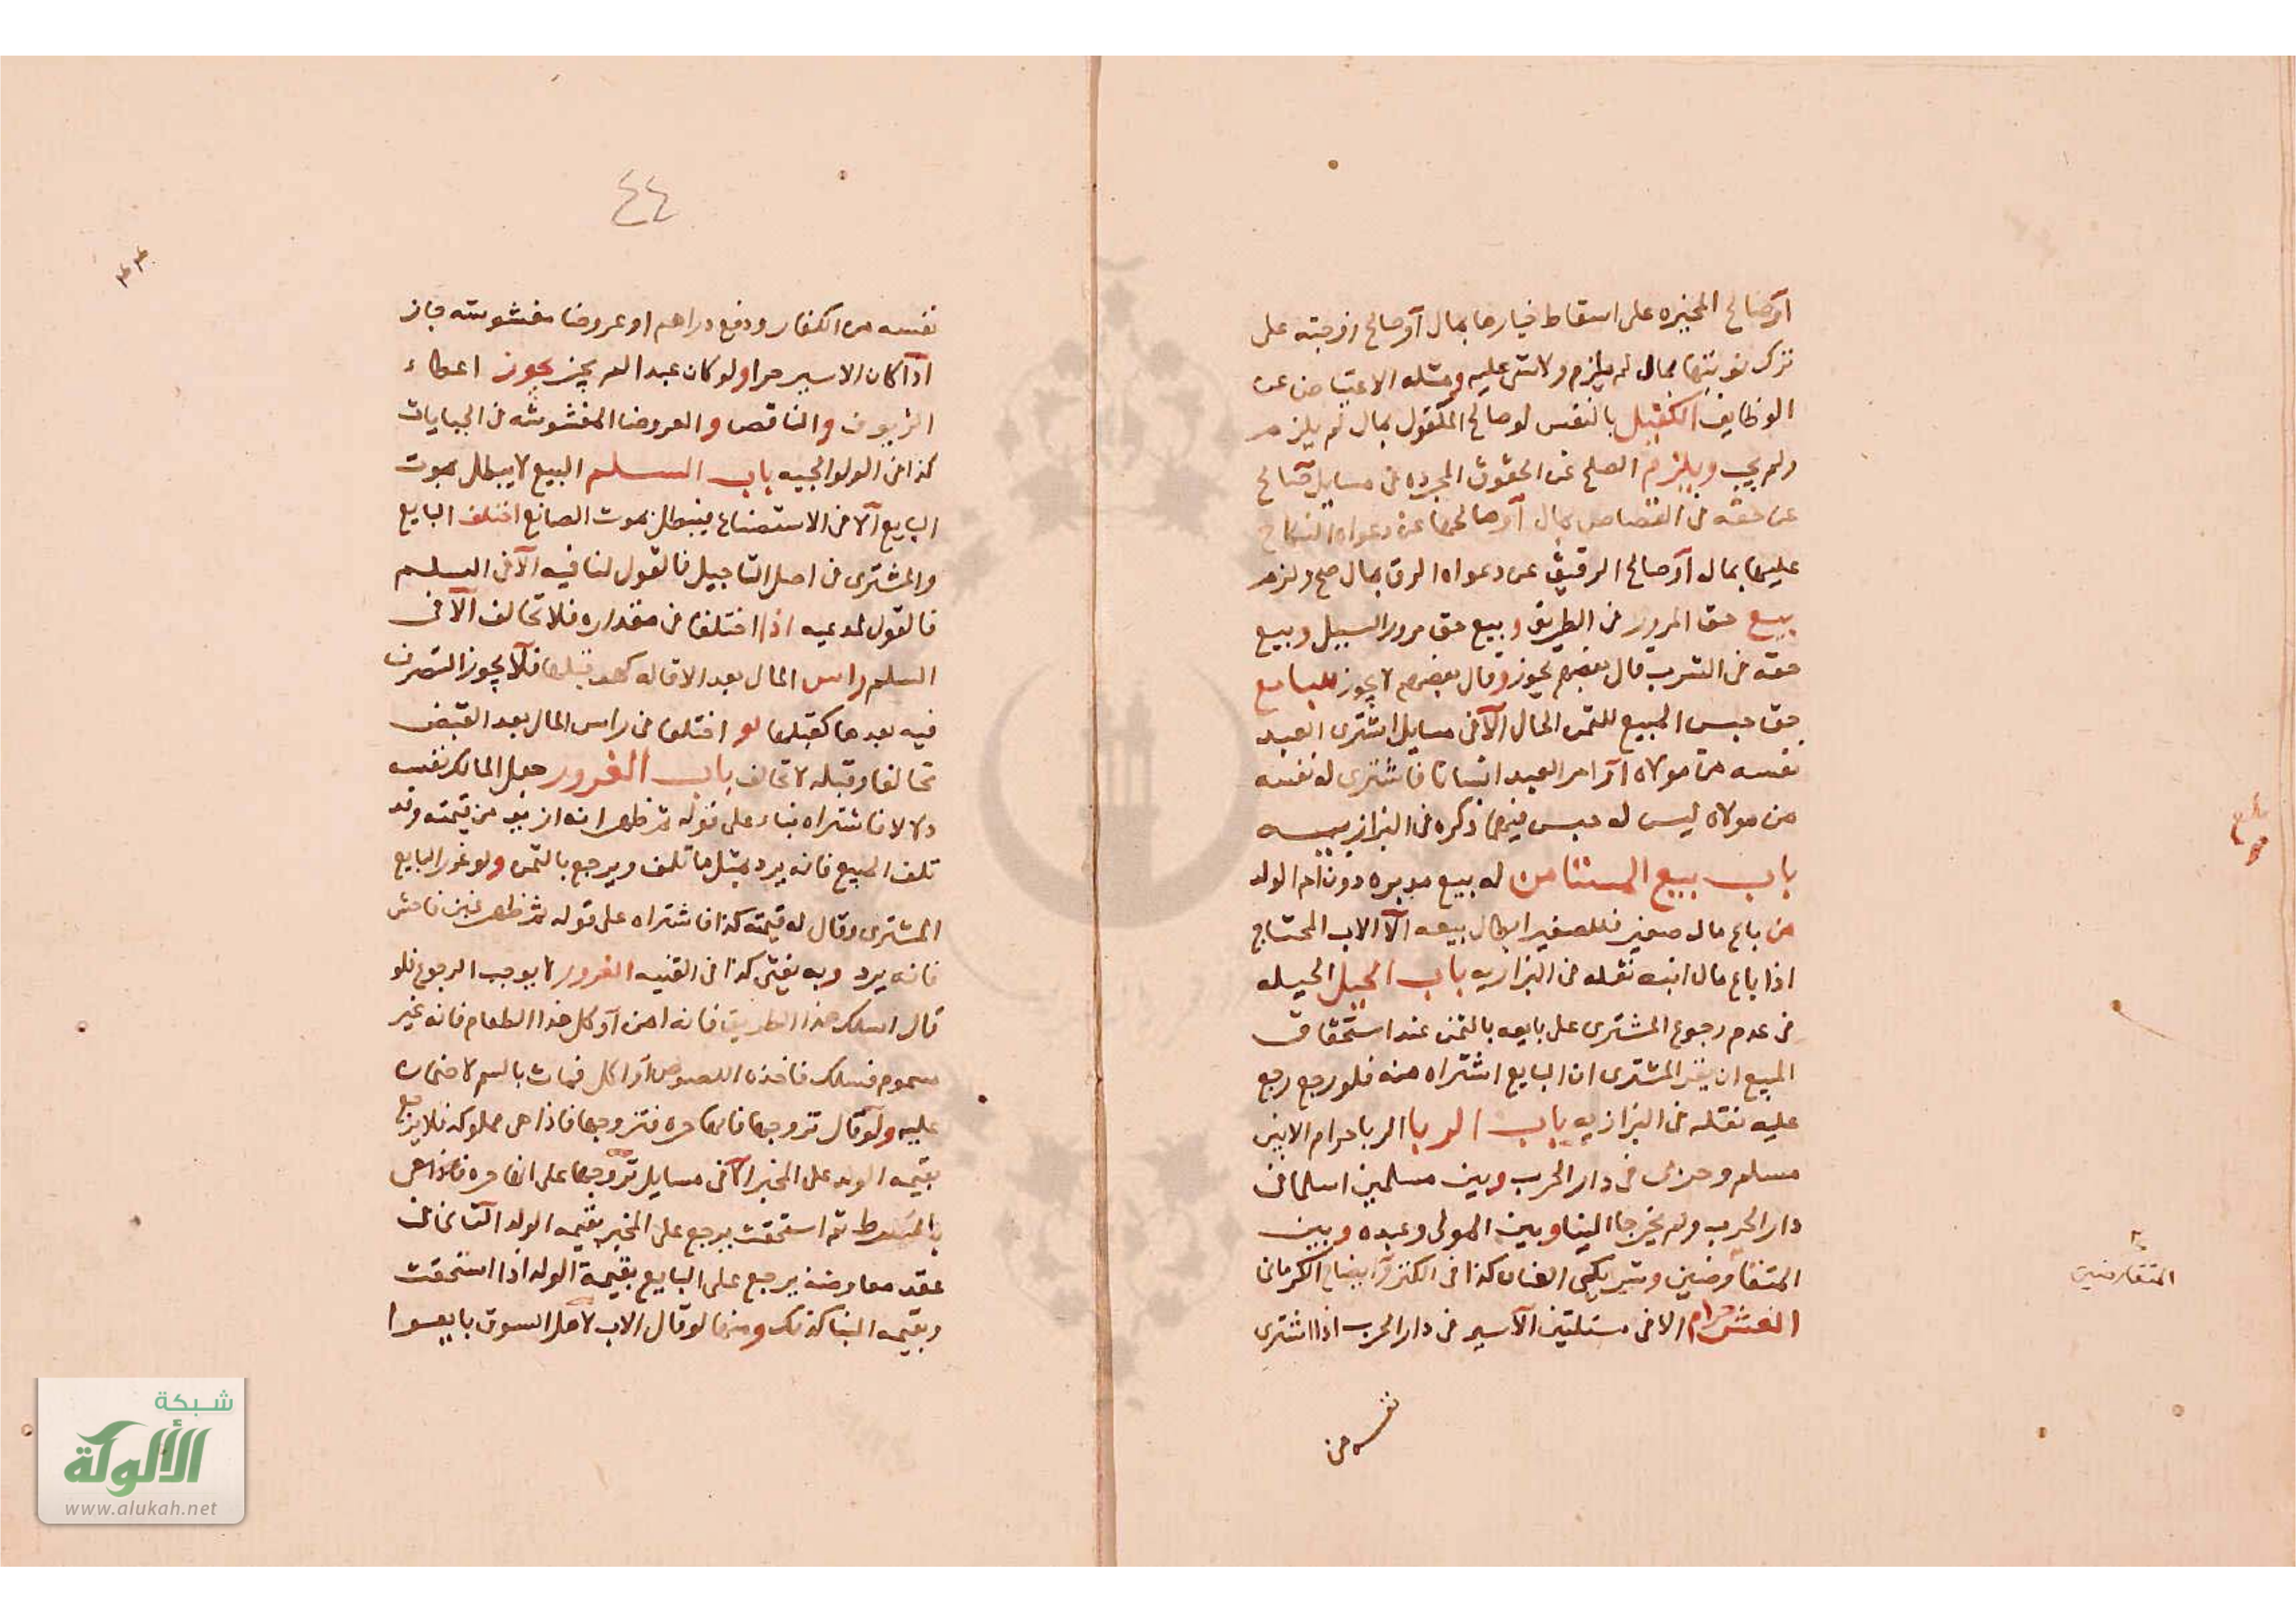 أو صالح المخيره على اسقاط خيارها بمال أو صالح زوجته على
ترك نوبتها بمال لم يلزم ولا شى عليه ومثله الاعتياض عن
الوظايف الكفيل بالنفس لو صالح المكفول بمال لم يلزم
ولم يجب ويلزم الصلح عن الحقوق المجرده فى مسايل صالح
عن حقه فى القصاص بمال أو صالحها عن دعواه النكاح
عليها بمال أو صالح الرقيق عن دعواه الرق بمال صح ولزم
بيع حق المرور فى الطريق وبيع حق مرور السبيل وبيع
حقه فى الشرب قال بعضهم يجوز وقال بعضهم لا يجوز للبايع
حق حبس المبيع للثمن الحال الا فى مسايل اشترى العبد
نفسه من مولاه أو امر العبد انسانا فاشترى له نفسه
من مولاه ليس له حبس فيهما ذكره فى البزازيه
باب بيع المستامن له بيع مدبره دون ام الولد
من باع مال صغير فللصغير ابطال بيعه الا الاب المحتاج
اذا باع مال ابنه نقله فى البزازيه باب الحيل الحيله
فى عدم رجوع المشترى على بايعه بالثمن عند استحقاق
المبيع ان يقر المشترى ان البايع اشتراه منه فلو رجع رجع
عليه نقله فى البزازيه باب الربا الربا حرام الا بين
مسلم وحربى فى دار الحرب وبين مسلمين اسلما فى
دار الحرب ولم يخرجا الينا وبين المولى وعبده وبين
المتفاوضين وشريكى العنان كذا فى الكنز وايضاح الكرمانى
الغش حرام الا فى مسئلتين الأسير فى دار الحرب اذا اشترى
نفسه من
المتفاوضين
بلغ
٤٤
نفسه من الكفار ودفع دراهم او عروضا مغشوشه جاز
اذا كان الاسير حرا ولو كان عبدا لم يجز يجوز اعطاء
الزيوف والناقص والعروض المغشوشه فى الجبايات
كذا فى الولوالجيه باب السلم البيع لا يبطل بموت
البايع الا فى الاستصناع فيبطل بموت الصانع اختلف البايع
والمشترى فى اصل التاجيل فالقول لنافيه الا فى السلم
فالقول لمدعيه اذا اختلفا فى مقداره فلا تحالف الا فى
السلم راس المال بعد الاقاله كهو قبلها فلا يجوز التصرف
فيه بعدها كقبلها لو اختلفا فى راس المال بعد القبض
تحالفا وقبله لا تحالف باب الغرور جعل المالك نفسه
دلالا فاشتراه بناء على قوله ثم ظهر انه ازيد من قيمته وقد
تلف المبيع فانه يرد مثل ما تلف ويرجع بالثمن ولو غرر البايع
المشترى وقال له قيمته كذا فاشتراه على قوله ثم ظهر غبن فاحش
فانه يرد وبه يفتى كذا فى القنيه الغرور لا يوجب الرجوع فلو
قال اسلك هذا الطريق فانه امن أو كل هذا الطعام فانه غير
مسموم فسلك فاخذه اللصوص أو اكل فمات بالسم لا ضمان
عليه ولو قال تزوجها فانها حره فتزوجها فاذا هى مملوكه فلا يرجع
بقيمه الولد على المخبر الا فى مسايل تزوجها على انها حره فاذا هى
بالشرط ثم استحقت يرجع على المخبر بقيمه الولد الثانى فى
عقد معاوضه يرجع على البايع بقيمة الولد اذا استحقت
وبقيمه البنا كذلك ومنها لو قال الاب لاهل السوق بايعوا
شبكة
الألوكة
www.alukah.net